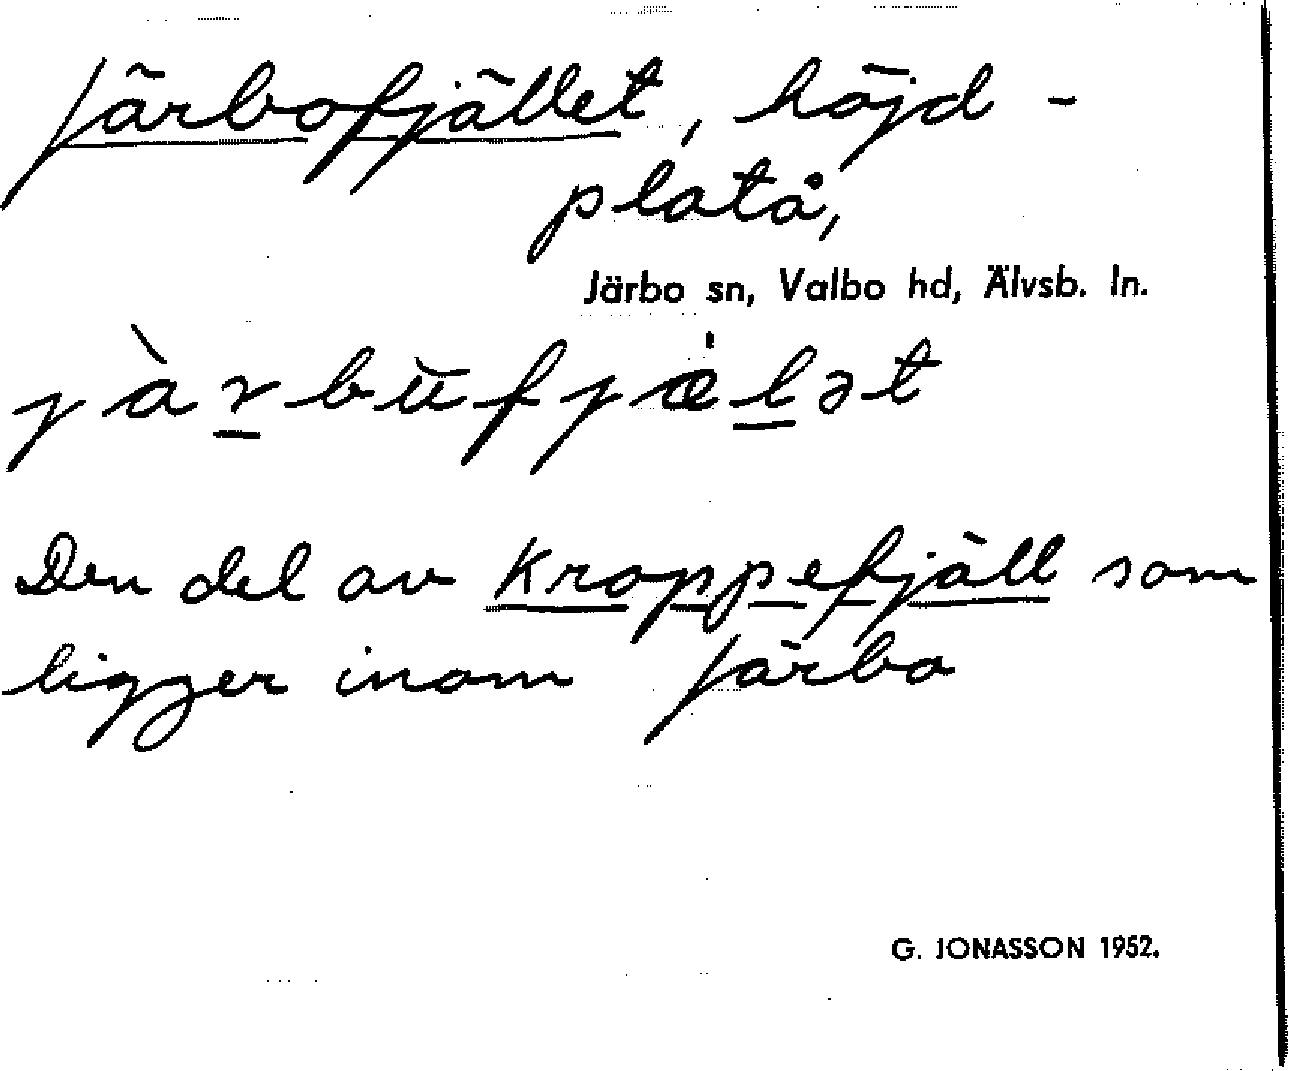 Järbofjället, höjd-
platå,
Järbo sn, Valbo hd, Älvsb. ln.
jàr̲bŭfjæ̍l̲ət
Den del av Kroppefjäll som
ligger inom Järbo
G. JONASSON 1952.